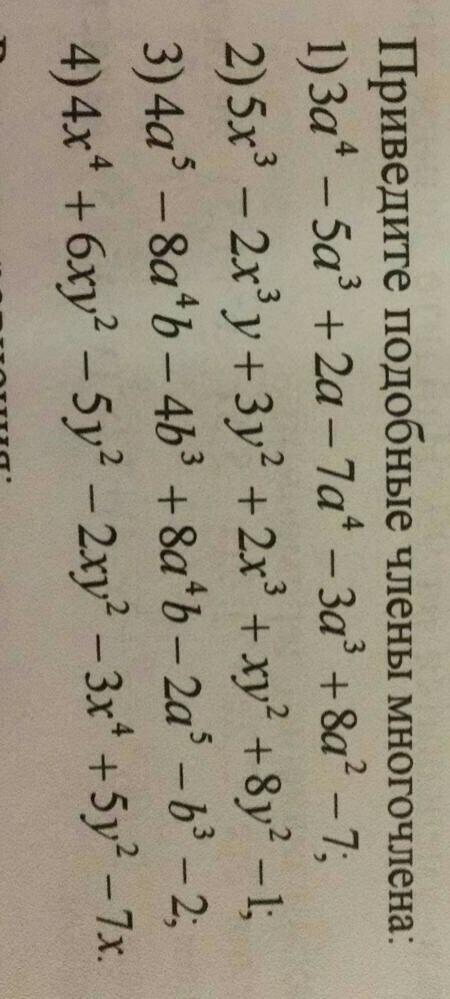 Приведите подобные члены многочлена:
1) 3a⁴ – 5a³ + 2a – 7a⁴ – 3a³ + 8a² – 7;
2) 5x³ – 2x³y + 3y² + 2x³ + xy² + 8y² – 1;
3) 4a⁵ – 8a⁴b – 4b³ + 8a⁴b – 2a⁵ – b³ – 2;
4) 4x⁴ + 6xy² – 5y² – 2xy² – 3x⁴ + 5y² – 7x.